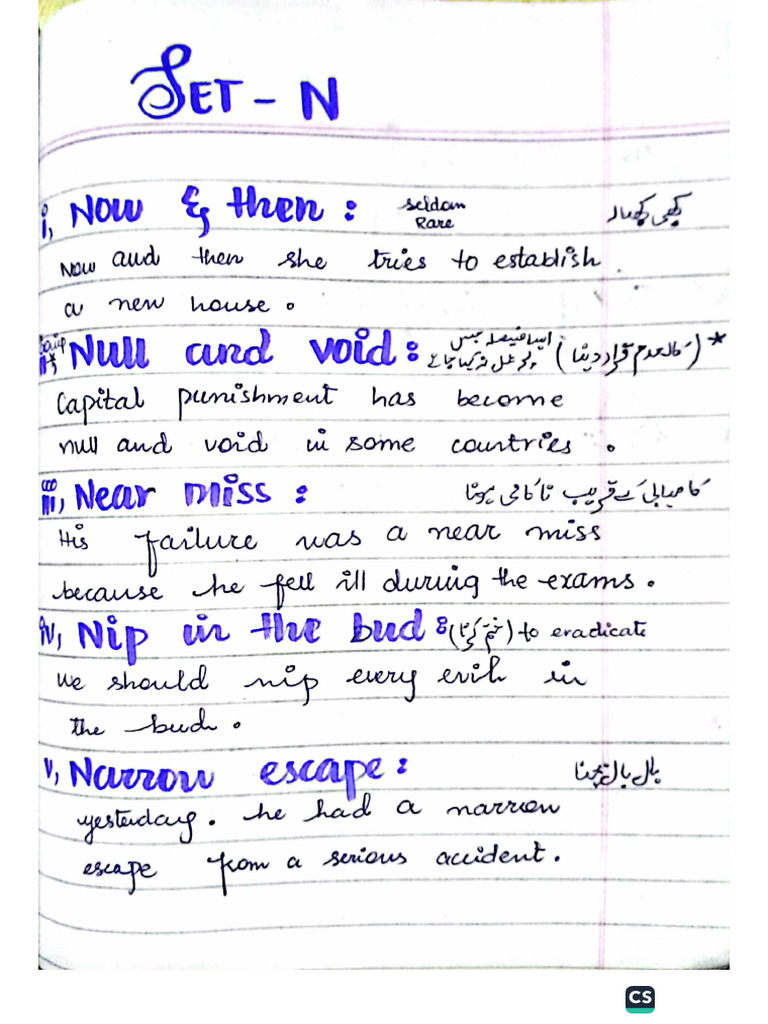 SET - N
i, Now & then : seldom Rare کبھی کبھار
Now and then she tries to establish
a new house.
ii, Null and void : ایسا فیصلہ جس پر عمل نہ کیا جائے (کالعدم قرار دینا) *
Capital punishment has become
null and void in some countries.
iii, Near miss : کامیابی کے قریب ناکامی ہونا
His failure was a near miss
because he fell ill during the exams.
iv, Nip in the bud : (ختم کرنا) to eradicate
We should nip every evil in
the bud.
v, Narrow escape : بال بال بچنا
yesterday. he had a narrow
escape from a serious accident.
CS